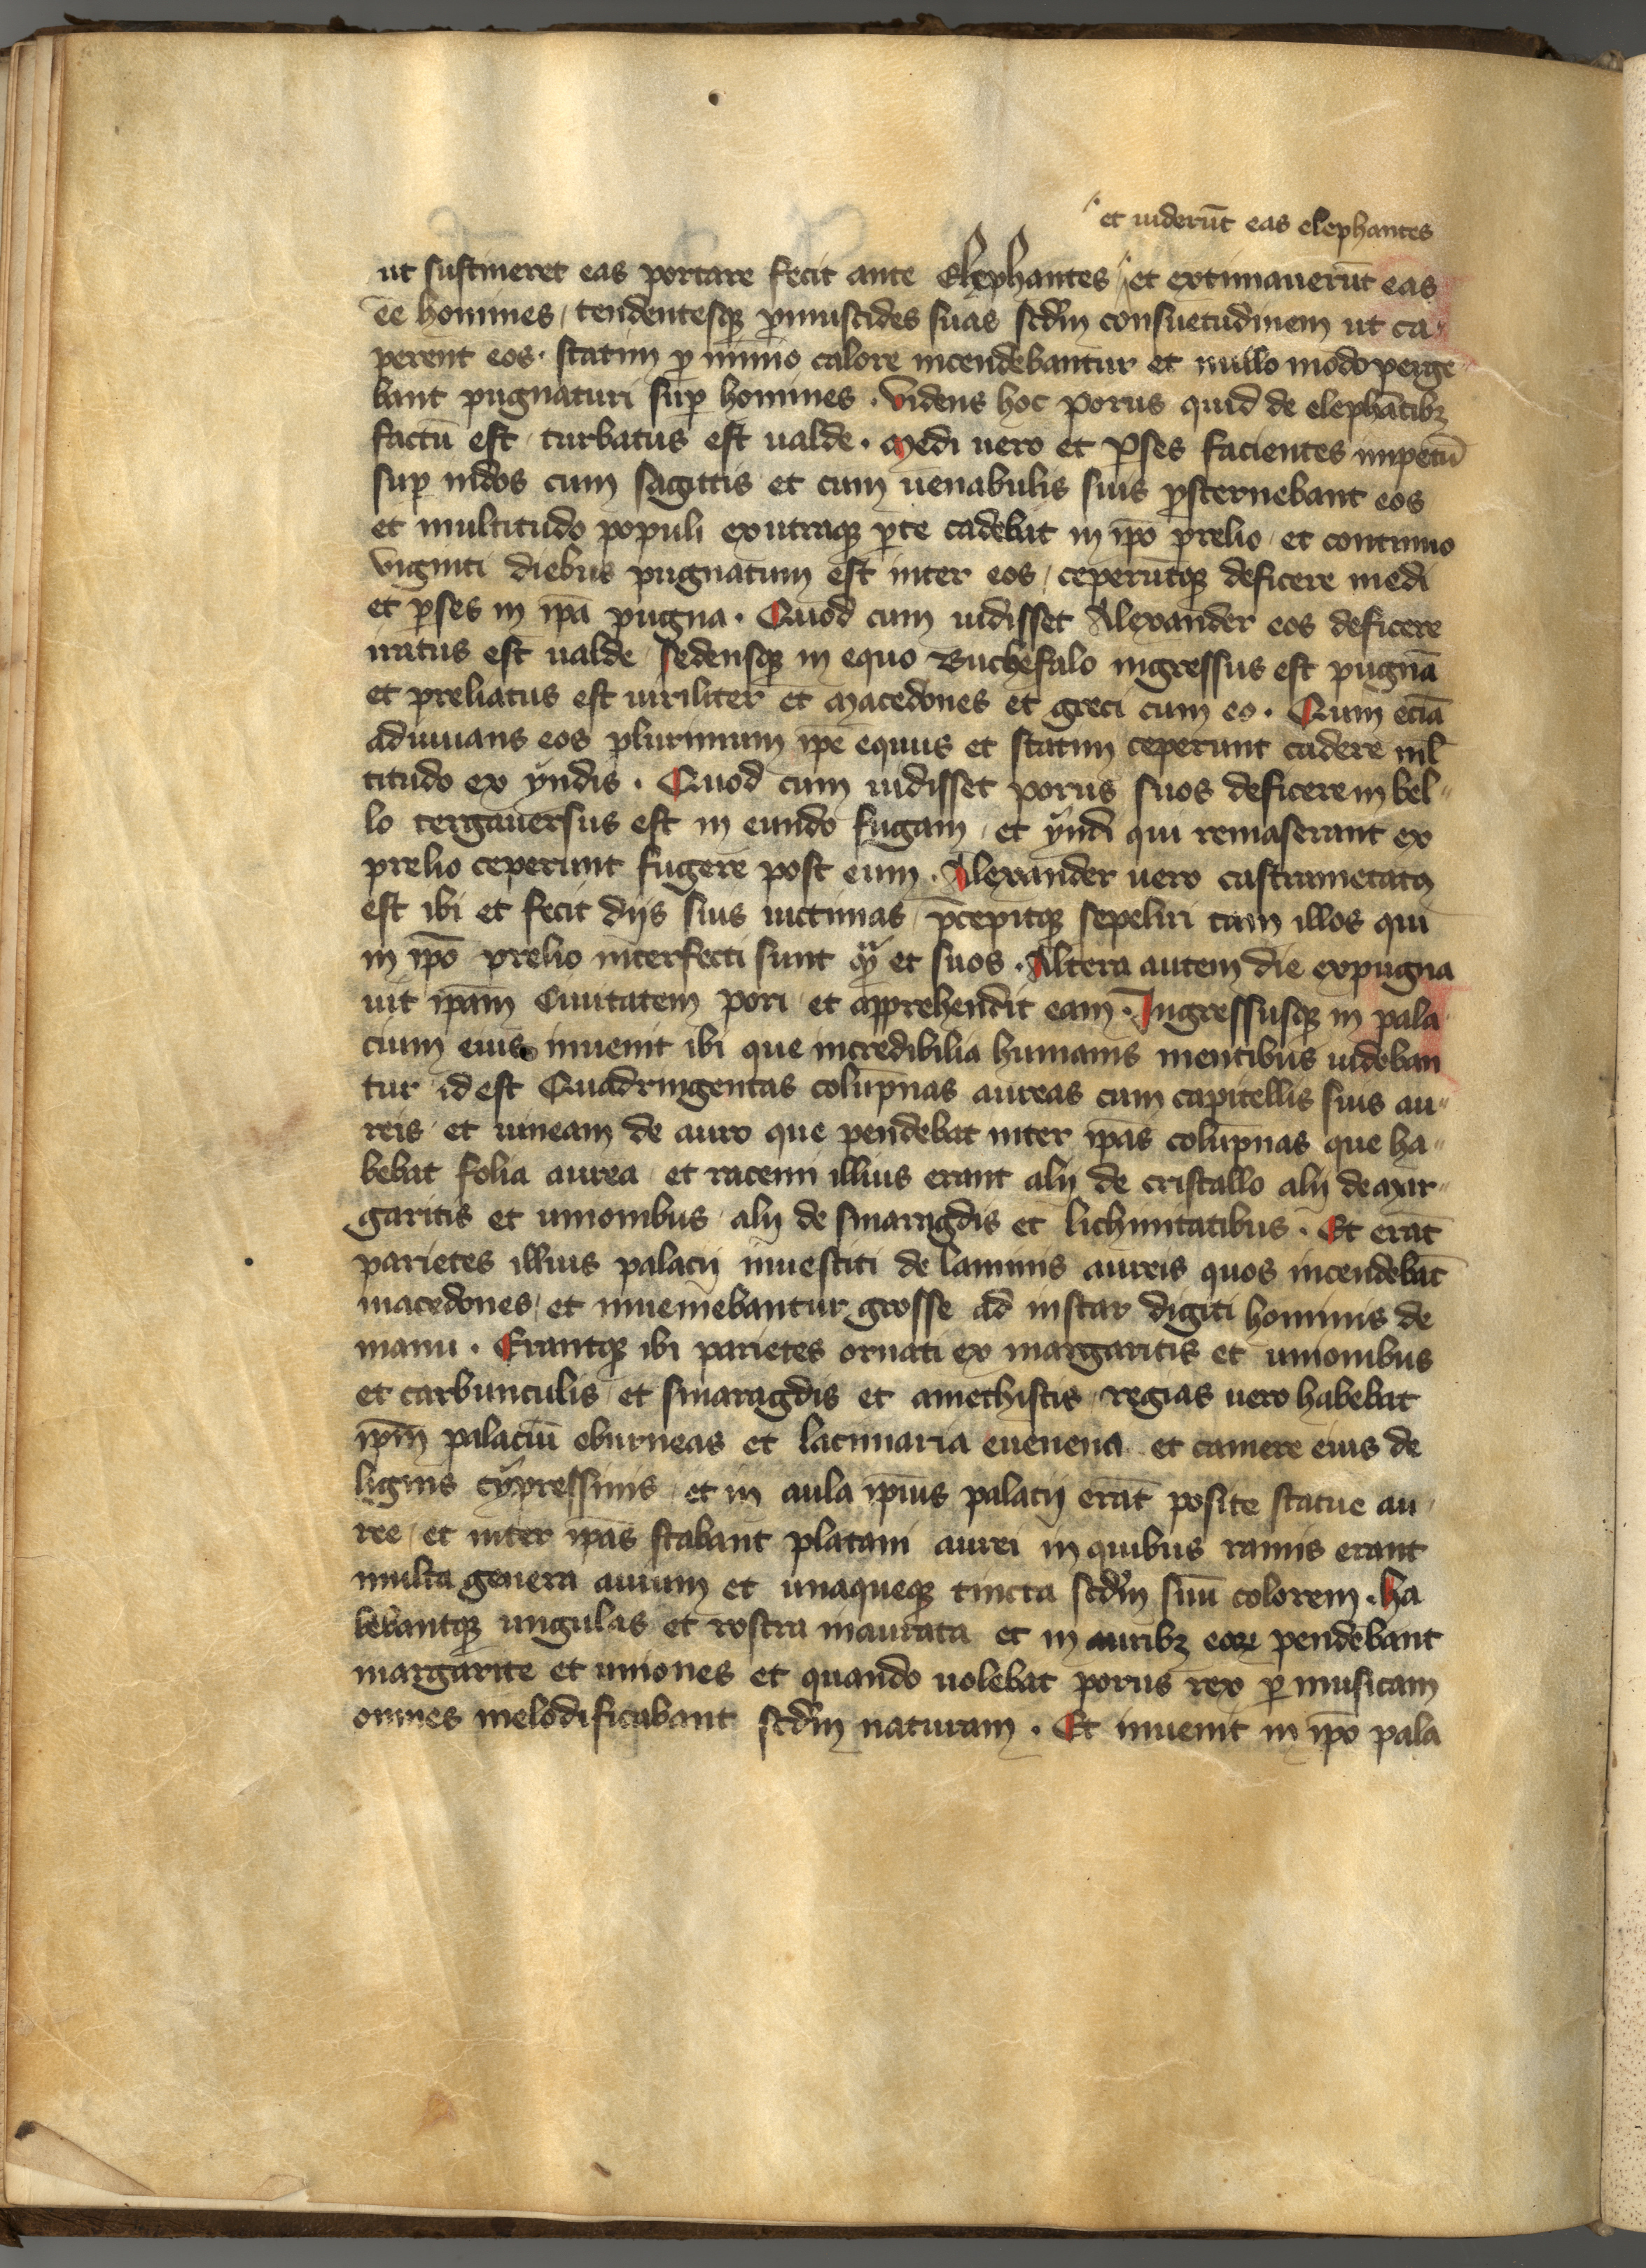 et uiderūt eas elephantes
ut sustineret eas portare fecit ante Elephantes et extimauerūt eas
ēe homines tendentesqꝫ ꝓmuscides suas scd̄m consuetudinem ut ca〃
perent eos · statim p̲ nimio calore incendebantur et nullo modo perge
bant pugnaturi sup̲ homines · Videns hoc porus quid de elephātibꝫ
factū est turbatus est ualde · Medi uero et p̲ses facientes impetū
sup̲ indos cum sagittis et cum uenabulis suis ꝓsternebant eos
et multitudo populi ex utraqꝫ p̲te cadebat in ip̄o prelio et continuo
viginti diebus pugnatum est inter eos ceperūtqꝫ deficere medi
et p̲ses in ip̄a pugna · Quod cum uidisset Alexander eos deficere
iratus est ualde Sedensqꝫ in equo Buchefalo ingressus est pugnā
et preliatus est uiriliter et Macedones et greci cum eo · Cum eciā
adiuuans eos plurimum ip̄e equus et statim ceperunt cadere ml̄
titudo ex ÿndis · Quod cum uidisset porus suos deficere in bel〃
lo tergauersus est in eundo fugam et ÿndi qui remaserant ex
prelio ceperunt fugere post eum · Alexander uero castrametatꝫ
est ibi et fecit dijs suis uictimas p̄cepitqꝫ sepeliri tam illos qui
in ip̄o prelio interfecti sunt qᷓ et suos · Altera autem die expugna
uit ip̄am Ciuitatem pori et apprehendit eam · Ingressusqꝫ in pala
cium eius inuenit ibi que incredibilia humanis mentibus uideban
tur id est Quadringentas colūpnas aureas cum capitellis suis au〃
reis et uineam de auro que pendebat inter ip̄as colūpnas que ha〃
bebat folia aurea et racemi illius erant alij de cristallo alij de mar〃
garitis et unionibus alij de smaragdis et lichnitatibus · Et erāt
parietes illius palacij inuestiti de laminis aureis quos incendebāt
macedones et inueniebantur grosse ad instar digiti hominis de
manu · Erantqꝫ ibi parietes ornati ex margaritis et unionibus
et carbunculis et smaragdis et amethistis regias uero habebat
ip̄m palaciū eburneas et lacunaria euenena et camere eius de
lignis cÿpressinis et in aula ip̄ius palacij erāt posite statue au〃
ree et inter ip̄as stabant platani aurei in quibus ramis erant
multa genera auium et unaqueqꝫ tincta scd̄m suū colorem · ha
bebantqꝫ ungulas et rostra inaurata et in auribꝫ eoꝝ pendebant
margarite et uniones et quando uolebat porus rex p̲ musicam
omnes melodificabant scd̄m naturam · Et inuenit in ip̄o pala